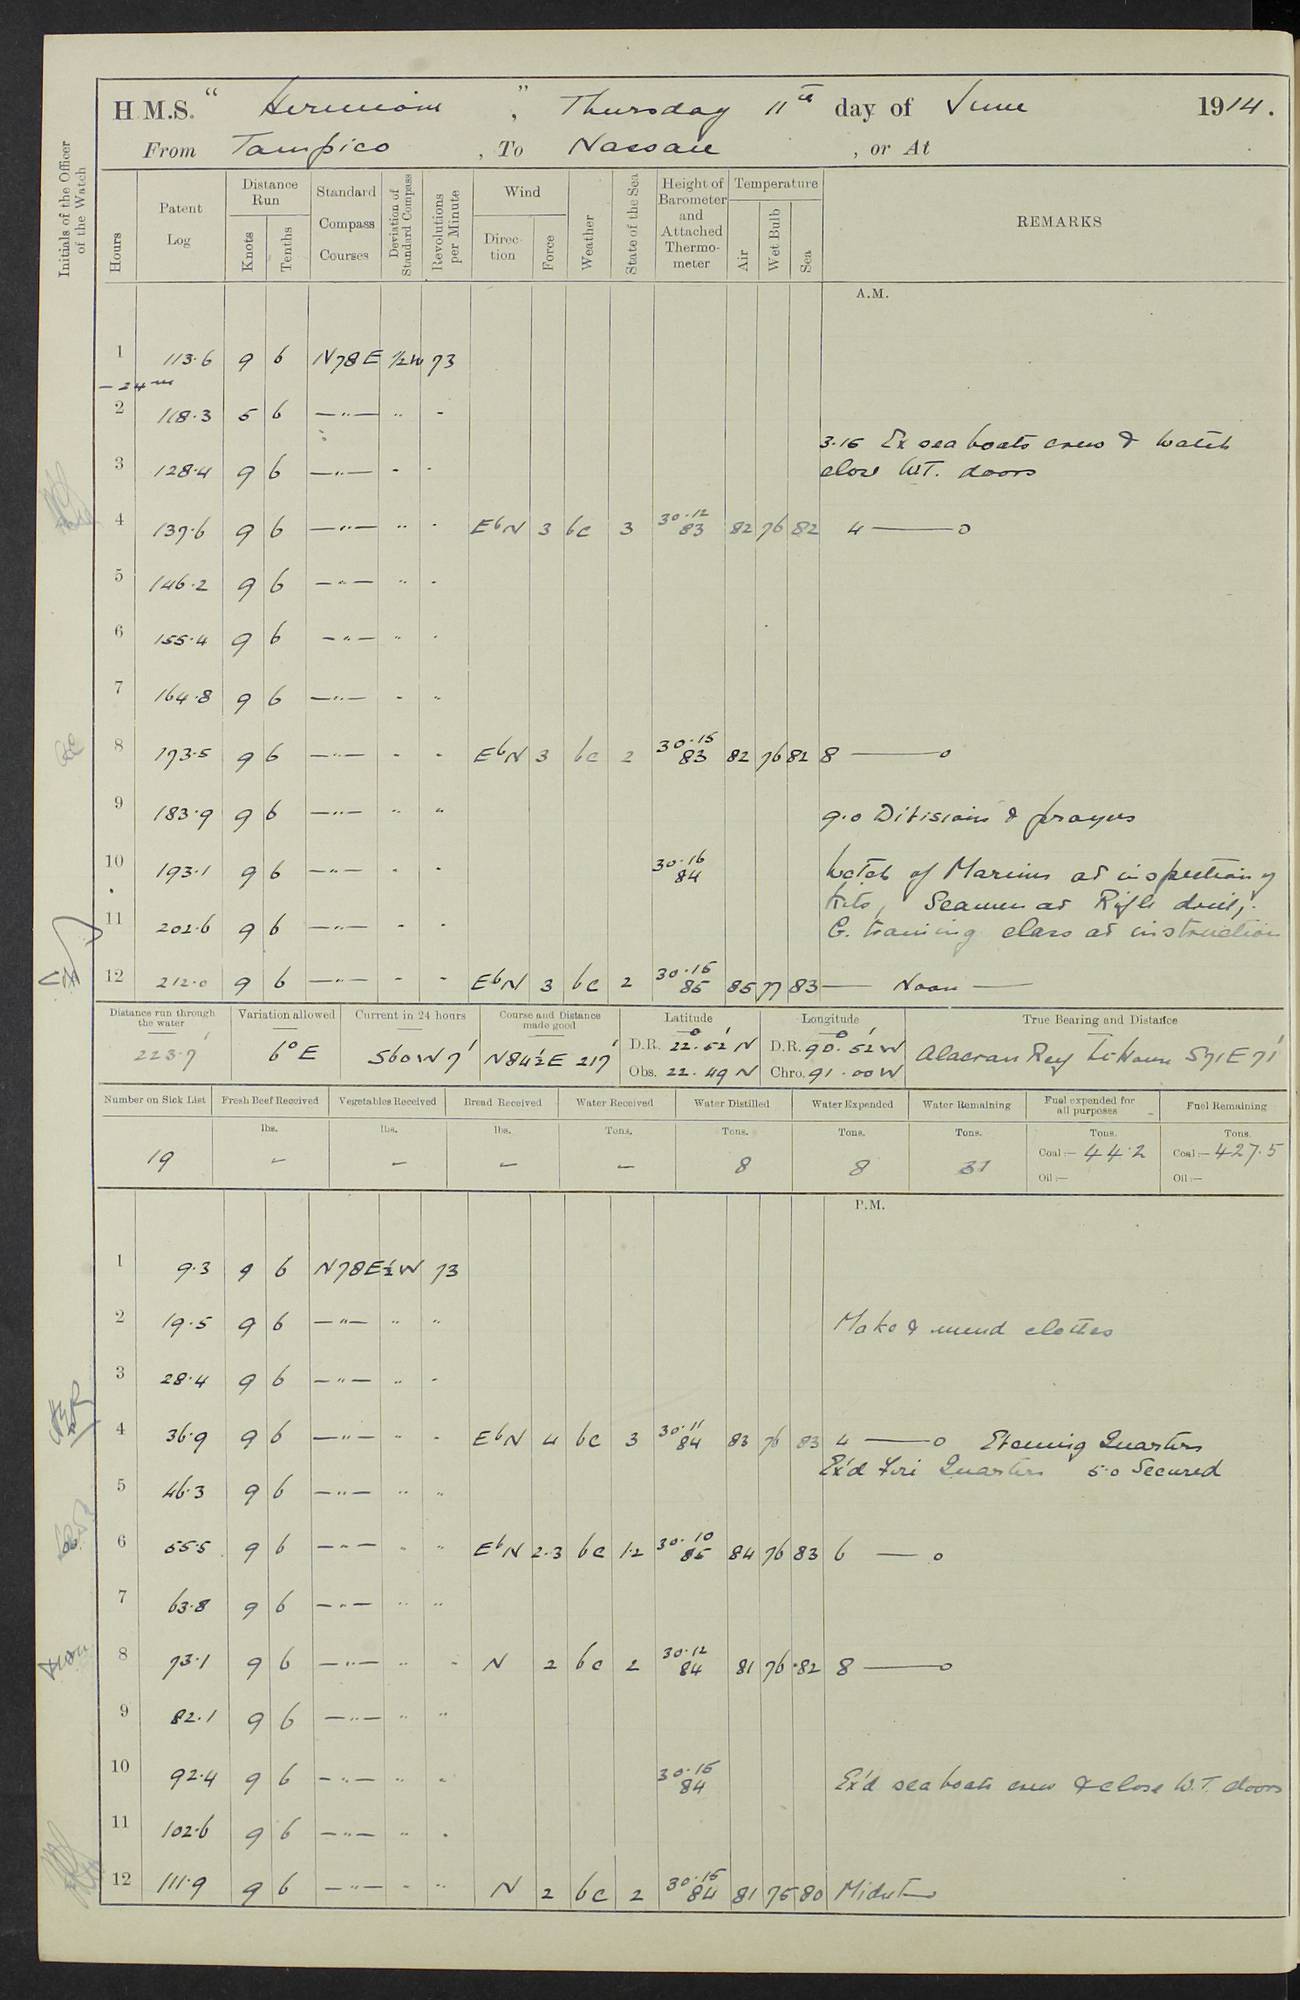 H.M.S. " Hermione ", Thursday 11th day of June 1914.
From Tampico, To Nassau, or At
Initials of the Officer of the Watch
Hours Patent Log Distance Run Knots Tenths Standard Compass Courses Deviation of Standard Compass Revolutions per Minute Wind Direction Force Weather State of the Sea Height of Barometer and Attached Thermometer Temperature Air Wet Bulb Sea REMARKS
A.M.
1 113.6 9 6 N78E ½W 73
- 24m
2 118.3 5 6 —"— " "
3.15 Ex sea boats crew & watch
3 128.4 9 6 —"— " " close W.T. doors
4 137.6 9 6 —"— " " EbN 3 bc 3 30.12 83 82 76 82 4 ——o
5 146.2 9 6 —"— " "
6 155.4 9 6 —"— " "
7 164.8 9 6 —"— " "
8 173.5 9 6 —"— " " EbN 3 bc 2 30.15 83 82 76 82 8 ——o
9 183.9 9 6 —"— " " 9.0 Divisions & prayers
10 193.1 9 6 —"— " " 30.16 84 Watch of Marines at inspection of
kits, Seamen at Rifle drill,
11 202.6 9 6 —"— " " G. training class at instruction
12 212.0 9 6 —"— " " EbN 3 bc 2 30.15 85 85 77 83 — Noon —
Distance run through the water Variation allowed Current in 24 hours Course and Distance made good Latitude Longitude True Bearing and Distance
223.7' 6° E S60W 7' N84½E 217' D.R. 22° 52' N D.R. 90° 52' W Alacran Reef Lt House S71E 71'
Obs. 22.49 N Chro. 91.00 W
Number on Sick List Fresh Beef Received Vegetables Received Bread Received Water Received Water Distilled Water Expended Water Remaining Fuel expended for all purposes Fuel Remaining
lbs. lbs. lbs. Tons. Tons. Tons. Tons. Tons. Tons.
19 - - - - 8 8 31 Coal:— 44.2 Coal:— 427.5
Oil:— Oil:—
P.M.
1 9.3 9 6 N78E ½W 73
2 19.5 9 6 —"— " " Make & mend clothes
3 28.4 9 6 —"— " "
4 36.9 9 6 —"— " " EbN 4 bc 3 30.11 84 83 76 83 4 ——o Evening Quarters
Ex'd Fire Quarters 5.0 Secured
5 46.3 9 6 —"— " "
6 55.5 9 6 —"— " " EbN 2.3 bc 1.2 30.10 85 84 76 83 6 — o
7 63.8 9 6 —"— " "
8 73.1 9 6 —"— " " N 2 bc 2 30.12 84 81 76 82 8 ——o
9 82.1 9 6 —"— " "
10 92.4 9 6 —"— " " 30.15 84 Ex'd sea boats crew & close W.T. doors
11 102.6 9 6 —"— " "
12 111.9 9 6 —"— " " N 2 bc 2 30.15 84 81 75 80 Midnt